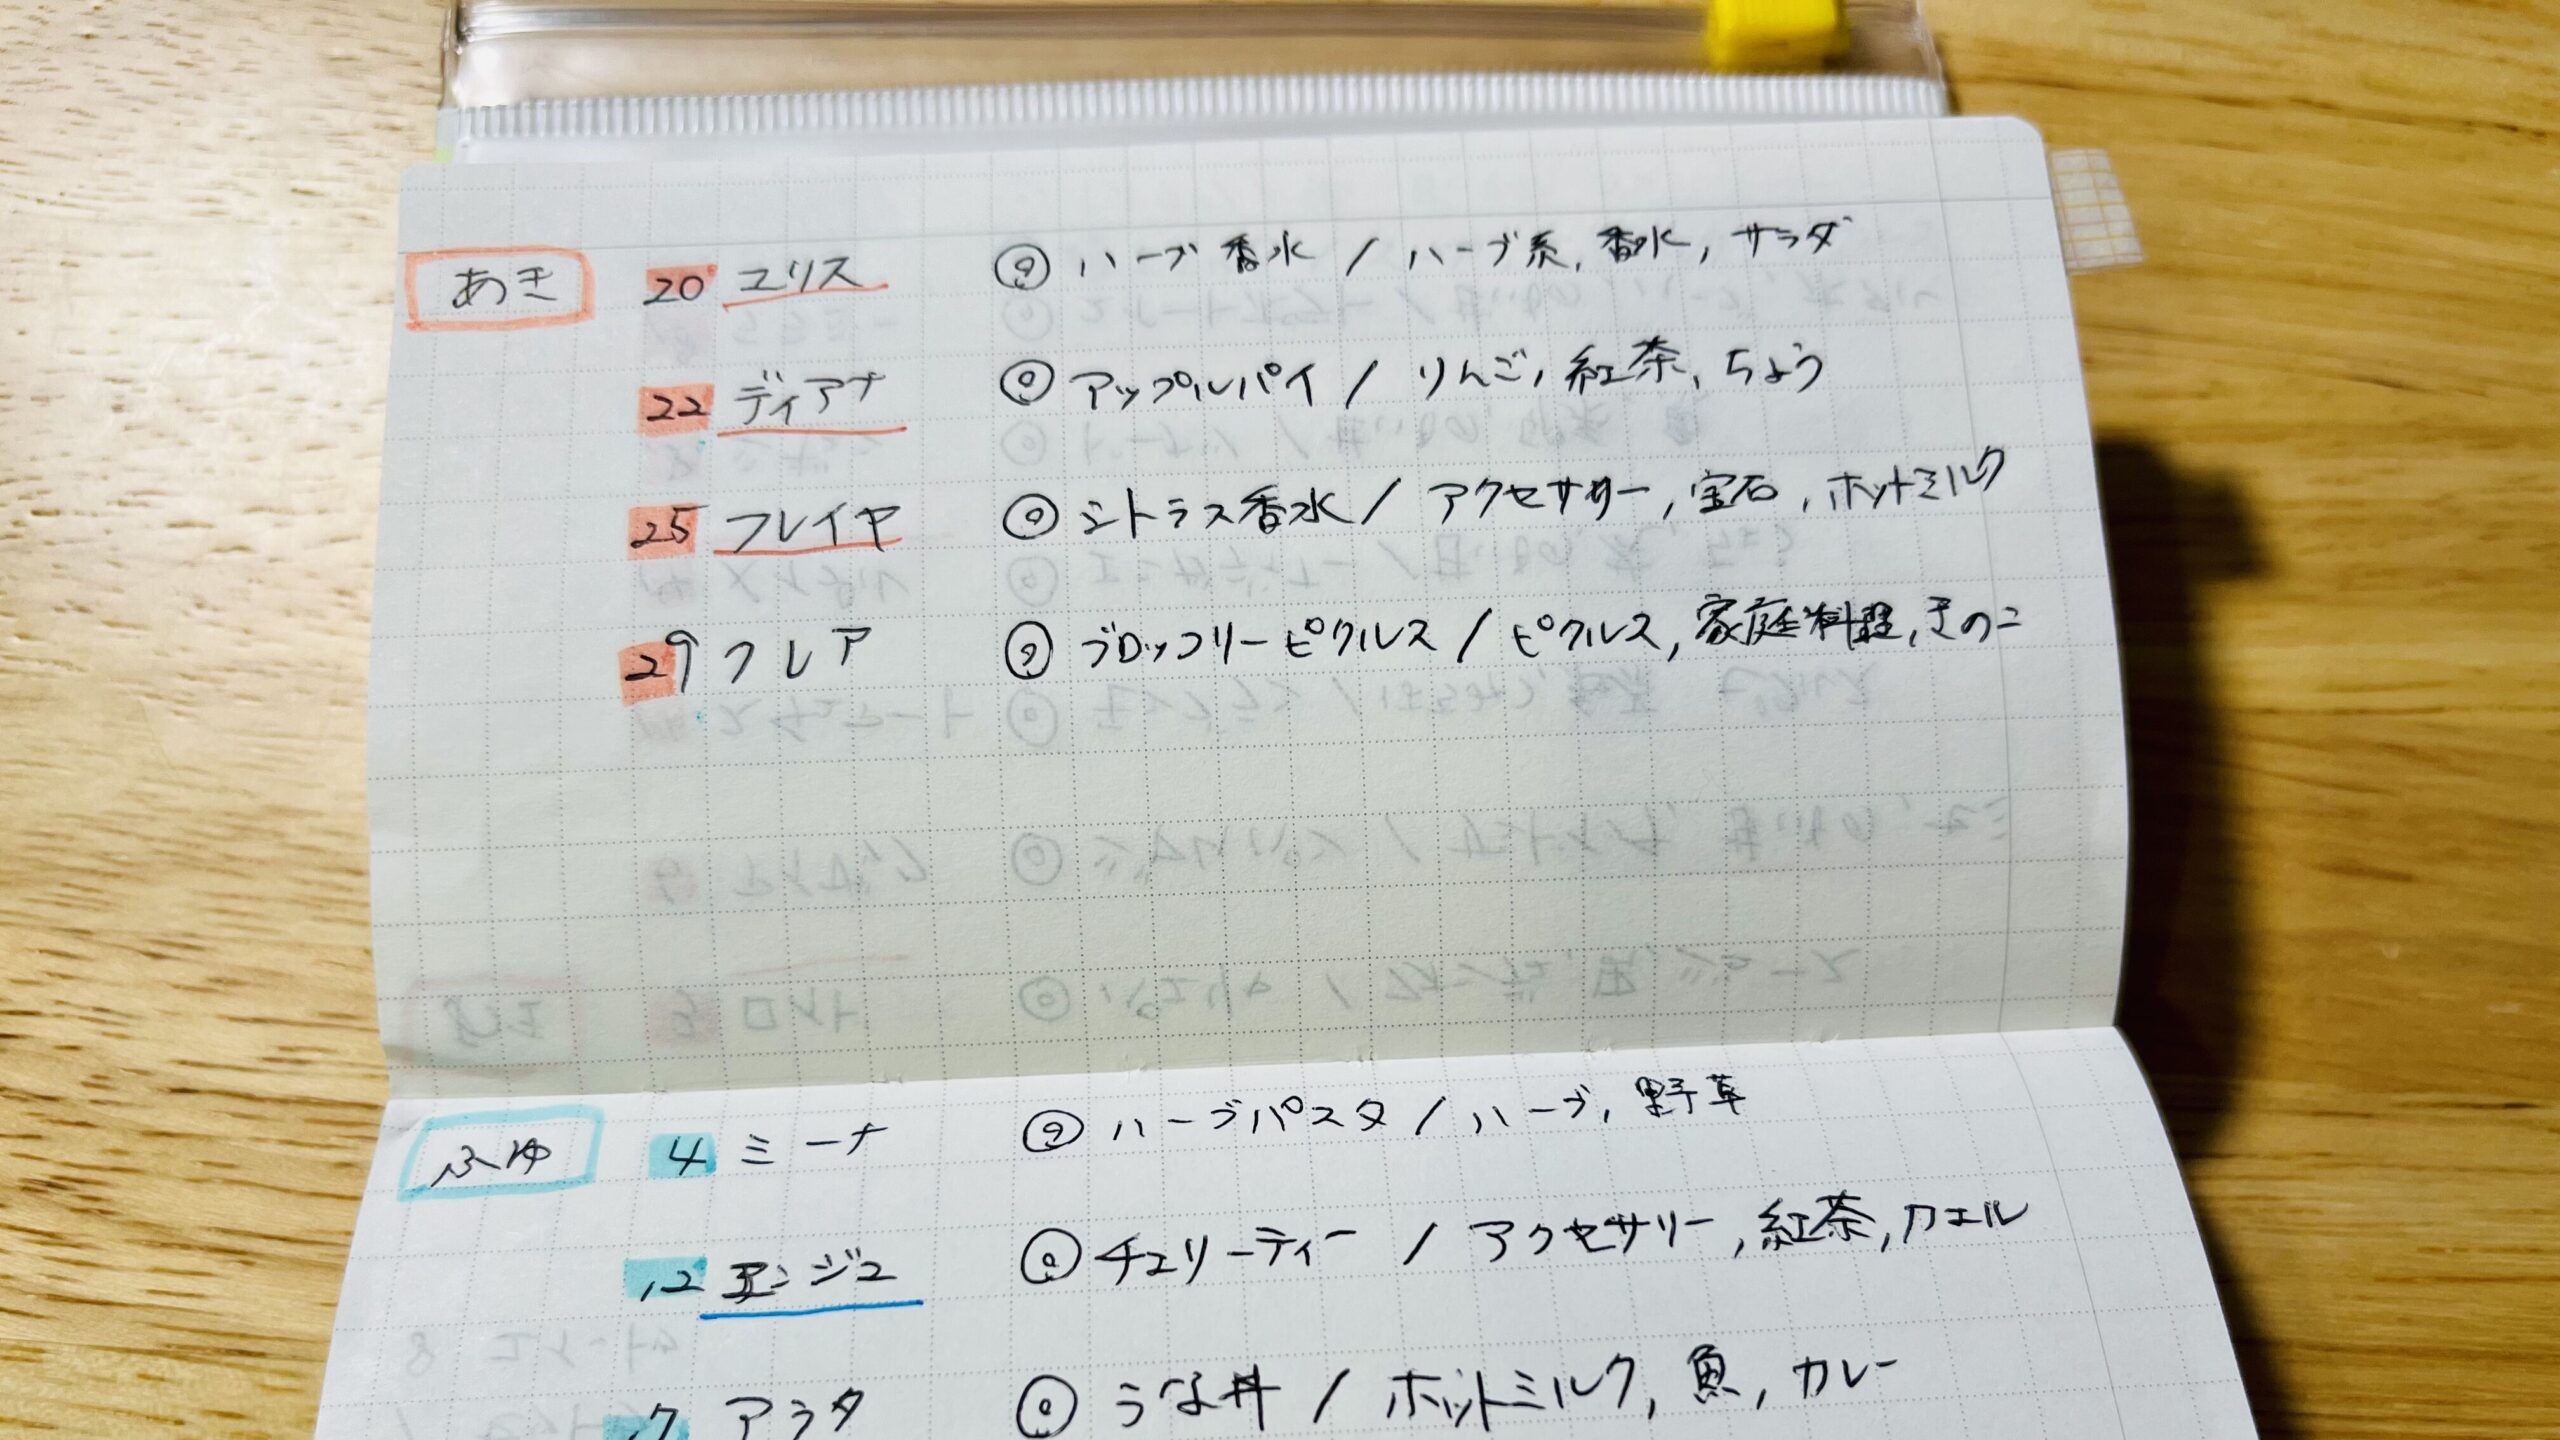 あき 20 ユリス ◎ ハーブ香水 / ハーブ系, 香水, サラダ
22 ディアナ ◎ アップルパイ / りんご, 紅茶, ちょう
25 フレイヤ ◎ シトラス香水 / アクセサリー, 宝石, ホットミルク
29 フレア ◎ ブロッコリーピクルス / ピクルス, 家庭料理, きのこ
ふゆ 4 ミーナ ◎ ハーブパスタ / ハーブ, 野草
12 アンジュ ◎ チェリーティー / アクセサリー, 紅茶, カエル
17 アラタ ◎ うな丼 / ホットミルク, 魚, カレー